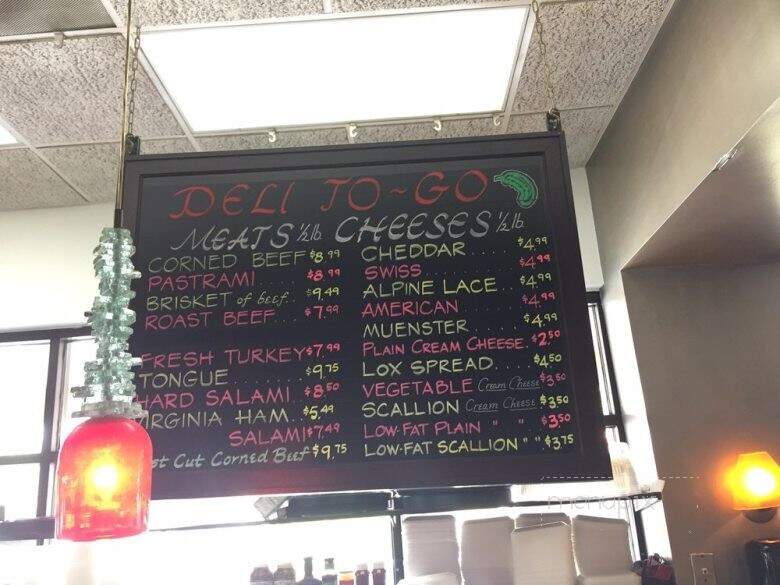 DELI TO-GO
MEATS ½ lb
CORNED BEEF $8.99
PASTRAMI $8.99
BRISKET of beef.. $9.49
ROAST BEEF.... $7.99
FRESH TURKEY $7.99
TONGUE ........ $9.75
HARD SALAMI. $8.50
VIRGINIA HAM.. $5.49
SALAMI $7.49
Cut Corned Beef $9.75
CHEESES ½ lb
CHEDDAR..... $4.99
SWISS......... $4.99
ALPINE LACE.. $4.99
AMERICAN...... $4.99
MUENSTER.... $4.99
PLAIN CREAM CHEESE. $2.50
LOX SPREAD.... $4.50
VEGETABLE Cream Cheese $3.50
SCALLION Cream Cheese $3.50
LOW-FAT PLAIN " " $3.50
LOW-FAT SCALLION " " $3.75